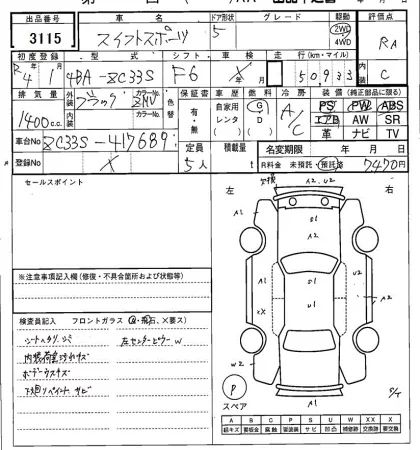 出品番号 車名 ドア形状 グレード 駆動 評価点
3115 スイフトスポーツ 5 2WD 4WD RA
初度登録 型式 シフト 車検 走行(km・マイル) 内装
R4年1月 4BA-ZC33S F6 50,933 C
排気量 外装 ブラック カラーNo. ZMV 色替 保証書 車歴 燃料 冷房 装備(純正部品に限る)
1400cc 内装 カラーNo. 有・無 自家用 レンタ G D A/C PS PW ABS
エアB AW SR
革 ナビ TV
車台No ZC33S-417689
登録No X
定員 5人 積載量 t
名変期限 年 月 日
R料金 未預託・預託済 7470円
セールスポイント
左 右
交換 A1 U2
A1 U1 A2
A2
A1 U1 A1
XX X
W2
A1
P スペア
※注意事項記入欄(修復・不具合箇所および状態等)
検査員記入 フロントガラス(A・飛石、X要ス)
シートヘタリ、シミ 左センターピラーW
内張荷室スリキズ
ボデーウスキズ
下廻りペイント サビ
A B C P S U W X XX
線キズ 要板金 腐蝕 要塗装 サビ 凹凸 補修跡 要交換